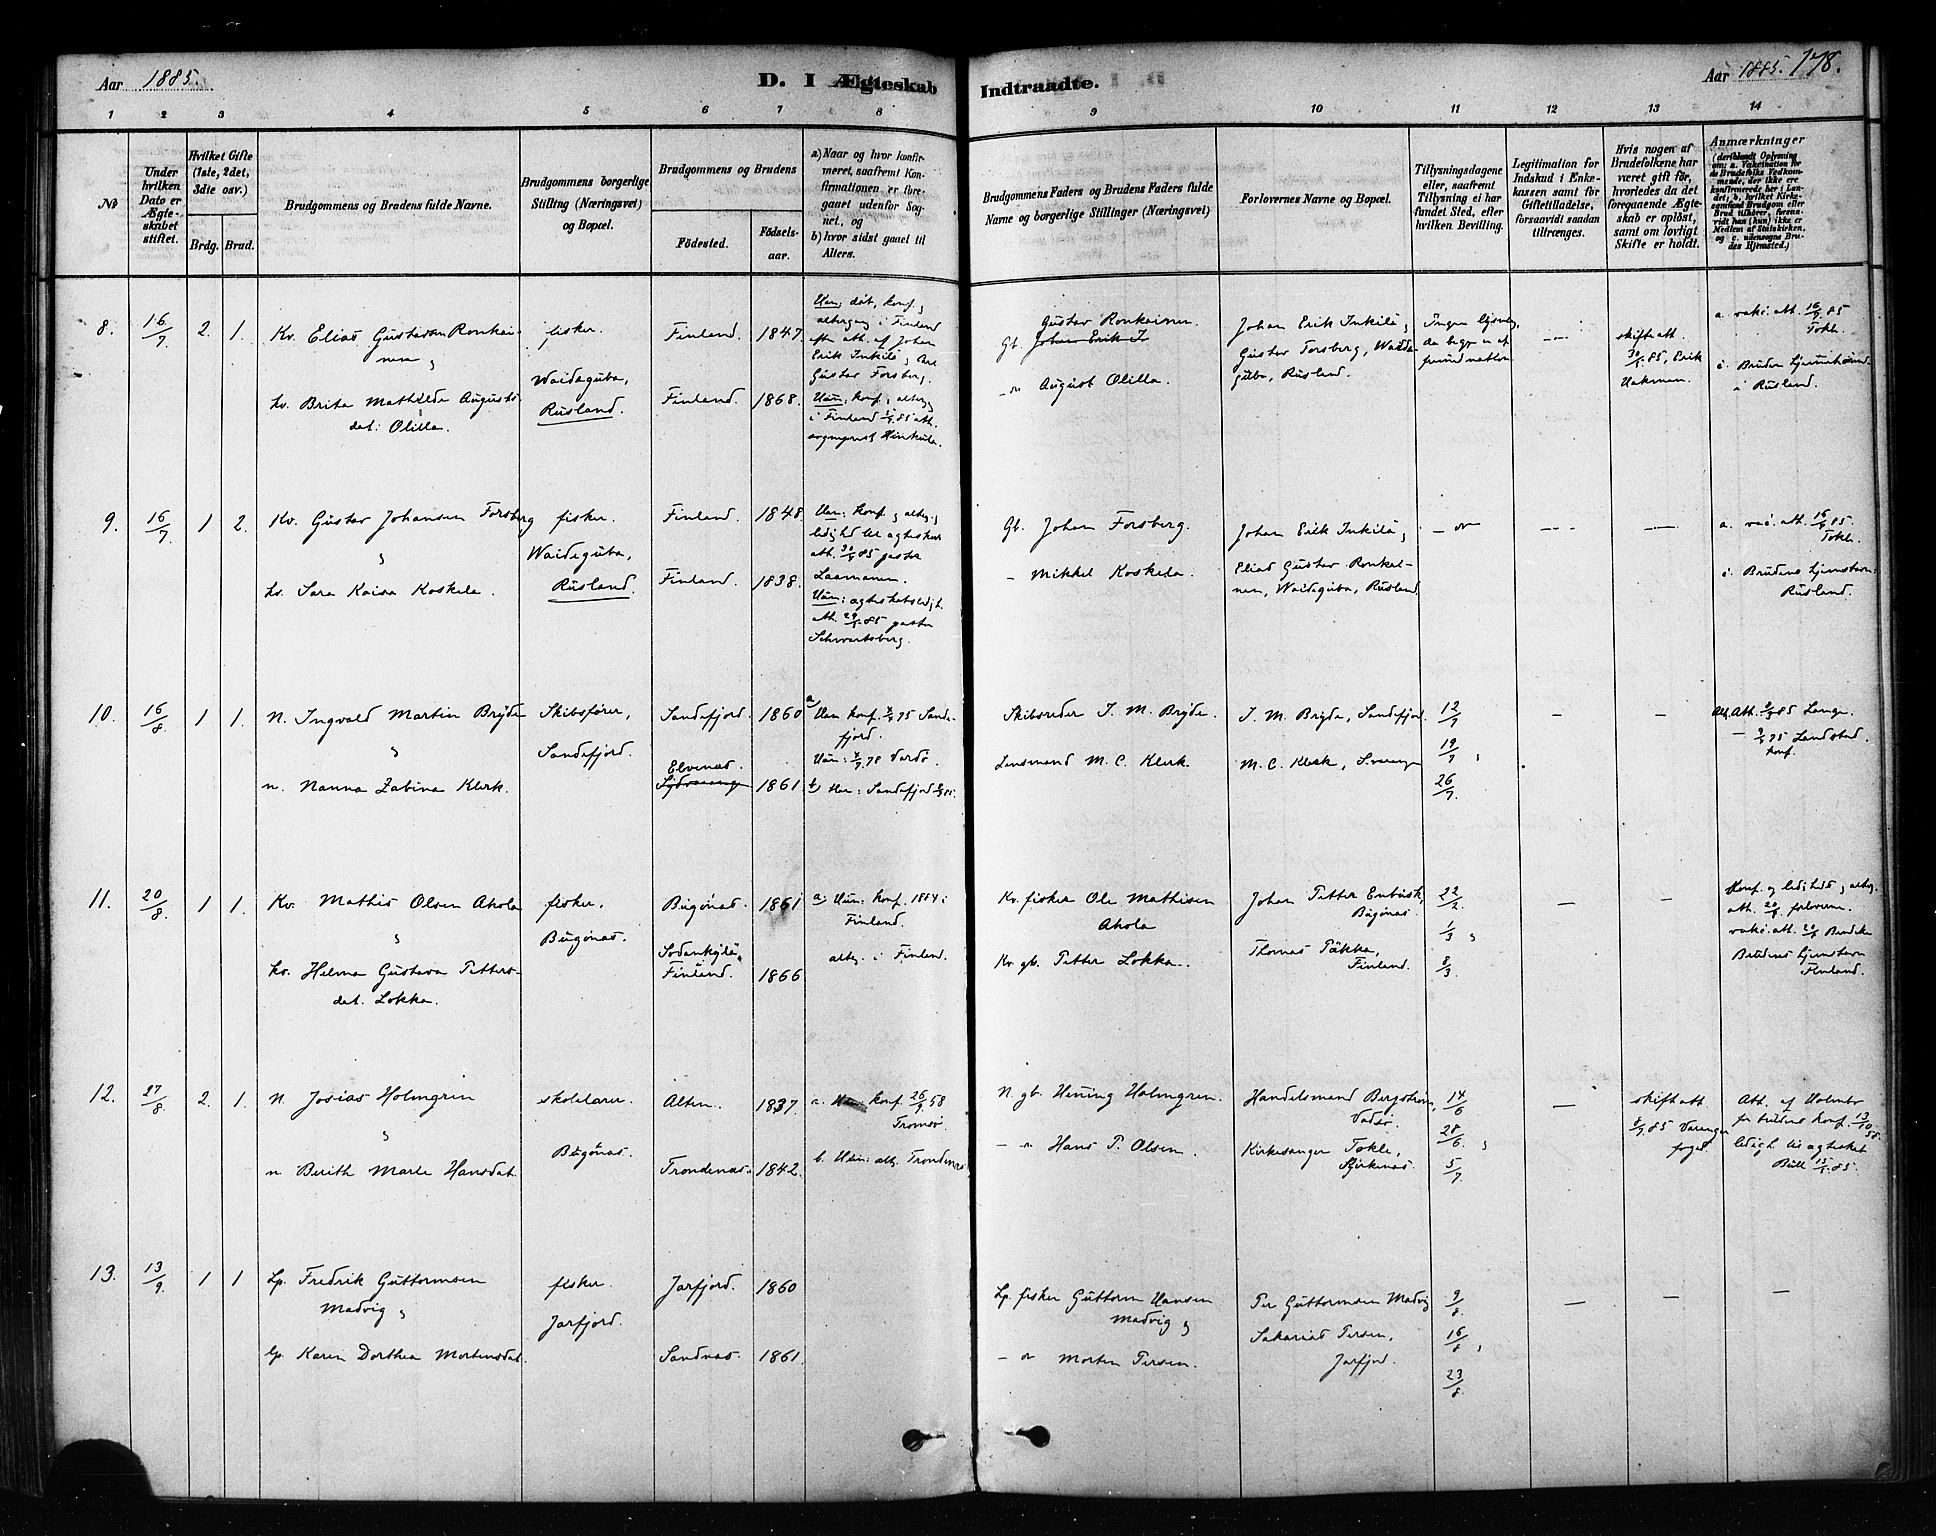 Aar 1885.
D. I Ægteskab
Indtraadte.
Aar 1885. 178.
1 2 3 4 5 6 7 8
9 10 11 12 13 14
No
Under hvilken Dato er Ægteskabet stiftet.
Hvilket Gifte (1ste, 2det, 3die osv.)
Brdg. Brud.
Brudgommens og Brudens fulde Navne.
Brudgommens borgerlige Stilling (Næringsvei) og Bopæl.
Brudgommens og Brudens
Födested.
Födsels-aar.
a) Naar og hvor konfirmeret, saafremt Konfirmationen er foregaaet udenfor Sognet, og
b) hvor sidst gaaet til Alters.
Brudgommens Faders og Brudens Faders fulde Navne og borgerlige Stillinger (Næringsvei)
Forlovernes Navne og Bopæl.
Tillysningsdagene eller, saafremt Tillysning ei har fundet Sted, efter hvilken Bevilling.
Legitimation for Indskud i Enkekassen samt før Giftetilladelse, forsaavidt saadan tiltrænges.
Hvis nogen af Brudefolkene har været gift før, hvorledes da det foregaaende Ægteskab er opløst, samt om lovligt Skifte er holdt.
Anmærkninger
(deriblandt Oplysning om: a. Vaksination for de Brudefolks Vedkommende, der ikke ere konfirmerede her i Landet; b. hvilket Kirkesamfund Brudgom eller Brud tilhører, forsaavidt han (hun) ikke er Medlem af Statskirken, og c. udensogns Brudes Hjemsted.)
8. 16/7 2. 1.
Kv. Elias Gustavsen Ronkai-
nen
kv. Brita Mathilde Augusts-
dat. Olilla.
fisker.
Waideguba,
Rusland.
Finland. 1847.
Finland. 1868.
Ham: døbt, konf. og
altergang i Finland
efter att. af Johan
Erik Inkilä og
Gustav Forsberg.
Gustav Ronkainen
Gb. Johan Erik I
August Olilla.
Johan Erik Inkilä,
Gustav Forsberg, Waide-
guba, Rusland.
skifteatt.
85, Erik
a. vakc. att. 16/7 85
Tokle.
c. Bruden hjemhørende
i Rusland.
9. 16/7 1 2.
Kv. Gustav Johansen Forsberg
kv. Sara Kaisa Koskela.
fisker.
Waideguba,
Rusland.
Finland. 1848.
Finland. 1838.
att. 85 pastor
Laamanen.
85 pastor
Schwartsberg.
Gb. Johan Forsberg.
- Mikkel Koskela.
Johan Erik Inkilä,
Elias Gustav Ronkai-
nen, Waideguba, Rusland.
a. vac. att. 16/7 85.
Tokle.
c. Brudens hjemstavn:
Rusland.
10. 16/8 1 1.
N. Ingvald Martin Bryde
n. Nanna Zabina Klerk.
Skibsfører,
Sandefjord.
Sandefjord. 1860
Elvenæs.
Sydvaranger 1861.
Ham konf. 75 Sande-
fjord.
Hun: 78 Vardø.
b) Ham: Sandefjord
Skibsreder I. M. Bryde.
Lensmand M. C. Klerk
I. M. Bryde, Sandefjord.
M. C. Klerk, Svanvik
12/7
19/7
26/7.
Att. 85 Lange.
75 Landstad.
konf.
11. 20/8. 1 1.
Kv. Mathis Olsen Ahola
kv. Helma Gustava Petters-
dat. Lokka.
fisker,
Bugønæs.
Bugønæs. 1861
Sodankylä,
Finland. 1866
a. Hun. konf. 1884 i
Finland.
alterg. i Finland.
Kv. fisker Ole Mathisen
Ahola
Kv. gb. Petter Lokka.
Johan Petter Enbusk,
Bugønæs.
Thomas Pakka,
Finland.
22/2
1/3
8/3
Konf. og ledighed og alterg.
att. 20/8 forloverne.
Brudens hjemstavn
Finland.
12. 27/8 2. 1.
N. Josias Holmgrin
n. Berith Marle Hansdat.
skolelærer.
Bugønæs.
Alten. 1837.
Trondenæs. 1842.
a. Ham konf. 26/9 58
Tromsø.
b. Hun: altg. Trondenæs
N. gb. Hening Holmgren.
Hans P. Olsen.
Handelsmand Bergstrøm,
Vadsø.
Kirkesanger Tokle,
Kirkenæs.
14/6
28/6.
5/7.
skifteatt.
85 Varanger
foged.
Att. af Holmbo
for brudens konf.
ledigh. til ægteskab
Bull 85.
13. 13/9 1 1
Lp. Fredrik Guttormsen
Madvig
lp. Karen Dorthea Mortensdat.
fisker
Jarfjord.
Jarfjord. 1860
Sandnæs. 1861.
Lp. fisker Guttorm Hansen
Madvig
Morten Persen.
Per Guttormsen Madvig
Sakarias Persen,
Jarfjord.
9/8
16/8
23/8